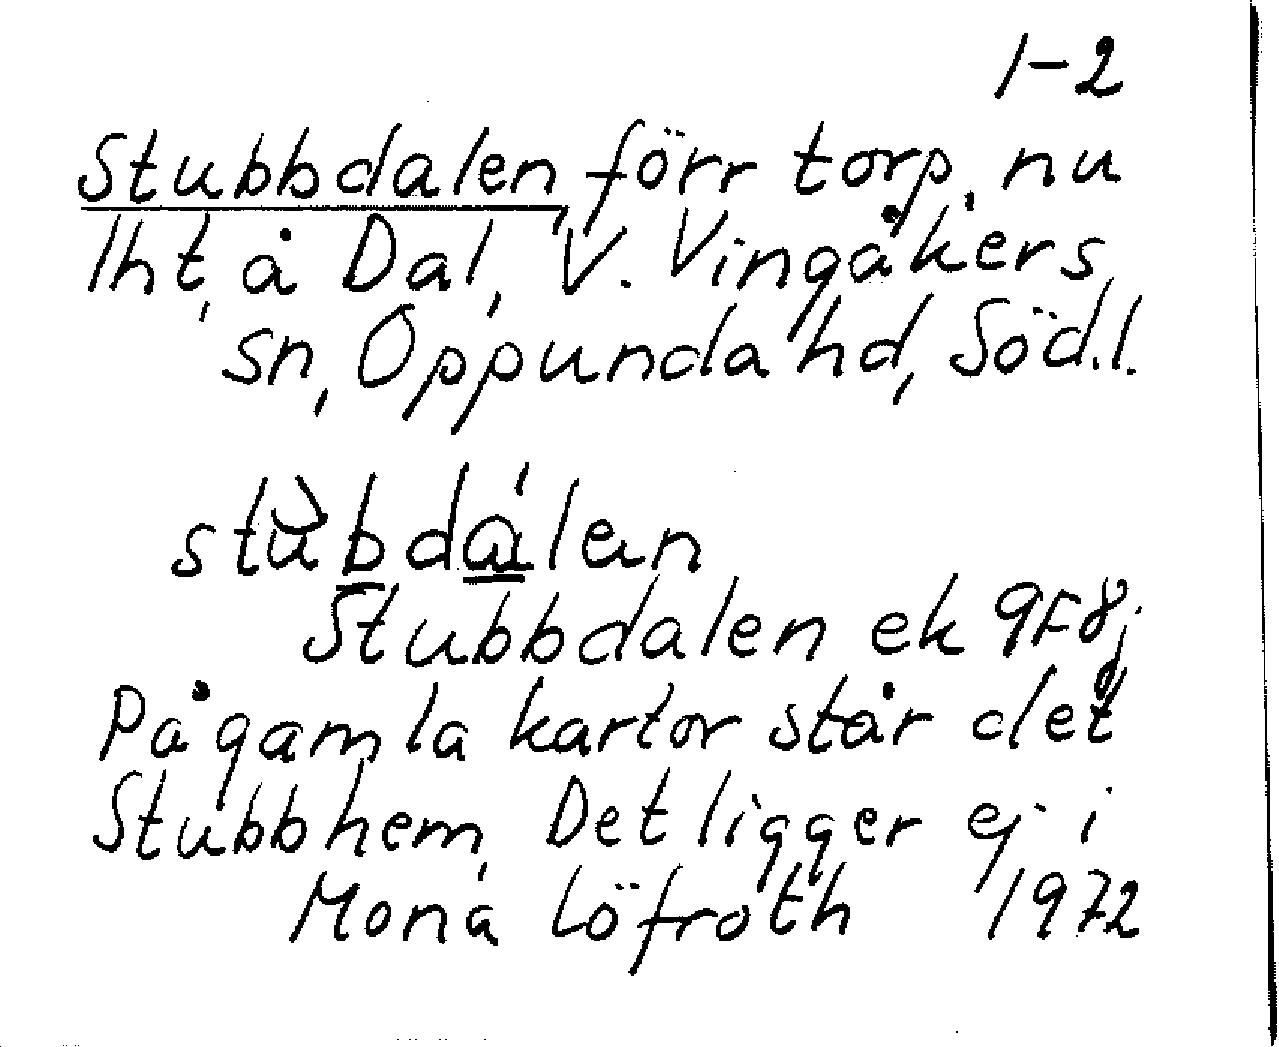 1-2
Stubbdalen förr torp, nu
lht, å Dal, V. Vingåkers
sn, Oppunda hd, Söd.l.
stùbdálen
Stubbdalen ek 9F8j
På gamla kartor står det
Stubbhem, Det ligger ej i
Mona Löfroth 1972